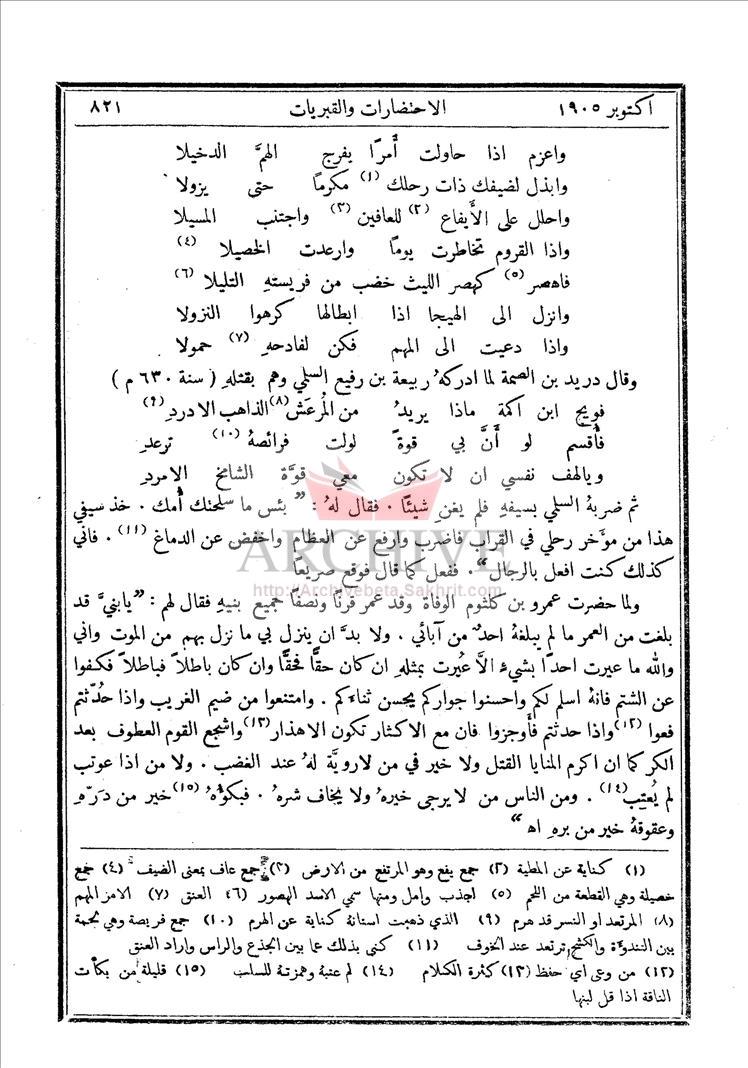 اكتوبر ١٩٠٥ الاحتضارات والقبريات ٨٢١
واعزم اذا حاولت أَمرًا يفرج الهمَّ الدخيلا
وابذل لضيفك ذات رحلك (١) مكرمًا حتى يزولا
واحلل على الأَيفاع (٢) للعافين (٣) واجتنب المسيلا
واذا القروم تخاطرت يومًا وارعدت الخصيلا (٤)
فاهصر (٥) كهصر الليث خضب من فريسته التليلا (٦)
وانزل الى الهيجا اذا ابطالها كرهوا النزولا
واذا دعيت الى المهم فكن لفادحه (٧) حمولا
وقال دريد بن الصمة لما ادركه ربيعة بن رفيع السلمي وهم بقتله ( سنة ٦٣٠ م )
فويح ابن اكمة ماذا يريد من المُرعَش (٨) الذاهب الادرد (٩)
فأُقسم لو أَنَّ بي قوةً لولت فرائصهُ (١٠) ترعد
ويالهف نفسي ان لا تكون معي قوَّة الشامخ الامردِ
ثم ضربهُ السلمي بسيفهِ فلم يغن شيئًا . فقال لهُ : " بئس ما سلحتك أُمك . خذ سيفي
هذا من مؤَخر رحلي في القراب فاضرب وارفع عن العظام واخفض عن الدماغ (١١) . فاني
كذلك كنت افعل بالرجال " . ففعل كما قال فوقع صريعًا
ولما حضرت عمرو بن كلثوم الوفاة وقد عمر قرنًا ونصفًا جميع بنيهِ فقال لهم : " يابنيَّ قد
بلغت من العمر ما لم يبلغهُ احدٌ من آبائي . ولا بدَّ ان ينزل بي ما نزل بهم من الموت واني
والله ما عيرت احدًا بشيءٍ الَّا عُيرت بمثلهِ ان كان حقًّا فحقًّا وان كان باطلاً فباطلاً فكفوا
عن الشتم فانهُ اسلم لكم واحسنوا جواركم يحسن ثناءكم . وامتنعوا من ضيم الغريب واذا حُدّثتم
فعوا (١٢) واذا حدثتم فأَوجزوا فان مع الاكثار تكون الاهذار (١٣) واشجع القوم العطوف بعد
الكر كما ان اكرم المنايا القتل ولا خير في من لارويَّة لهُ عند الغضب . ولا من اذا عوتب
لم يُعتِب (١٤) . ومن الناس من لا يرجى خيرهُ ولا يخاف شرهُ . فبكؤهُ (١٥) خير من درّهِ
وعقوقهُ خير من برهِ اه "
(١) كناية عن المطية (٢) جمع يفع وهو المرتفع من الارض (٣) جمع عاف بمعنى الضيف (٤) جمع
خصيلة وهي القطعة من اللحم (٥) اجذب وامل ومنها سمي الاسد الهصور (٦) العنق (٧) الامر المهم
(٨) المرتعد او النسر قد هرم (٩) الذي ذهبت اسنانهُ كناية عن الهرم (١٠) جمع فريصة وهي لحمة
بين الثندوَة والكشح ترتعد عند الخوف (١١) كنى بذلك عما بين الجذع والراس واراد العنق
(١٢) من وعى اي حفظ (١٣) كثرة الكلام (١٤) لم عتبهُ وهمزتهُ للسلب (١٥) قليلهُ من بكأَت
الناقة اذا قل لبنها
ARCHIVE
http://Archivebeta.Sakhrit.com